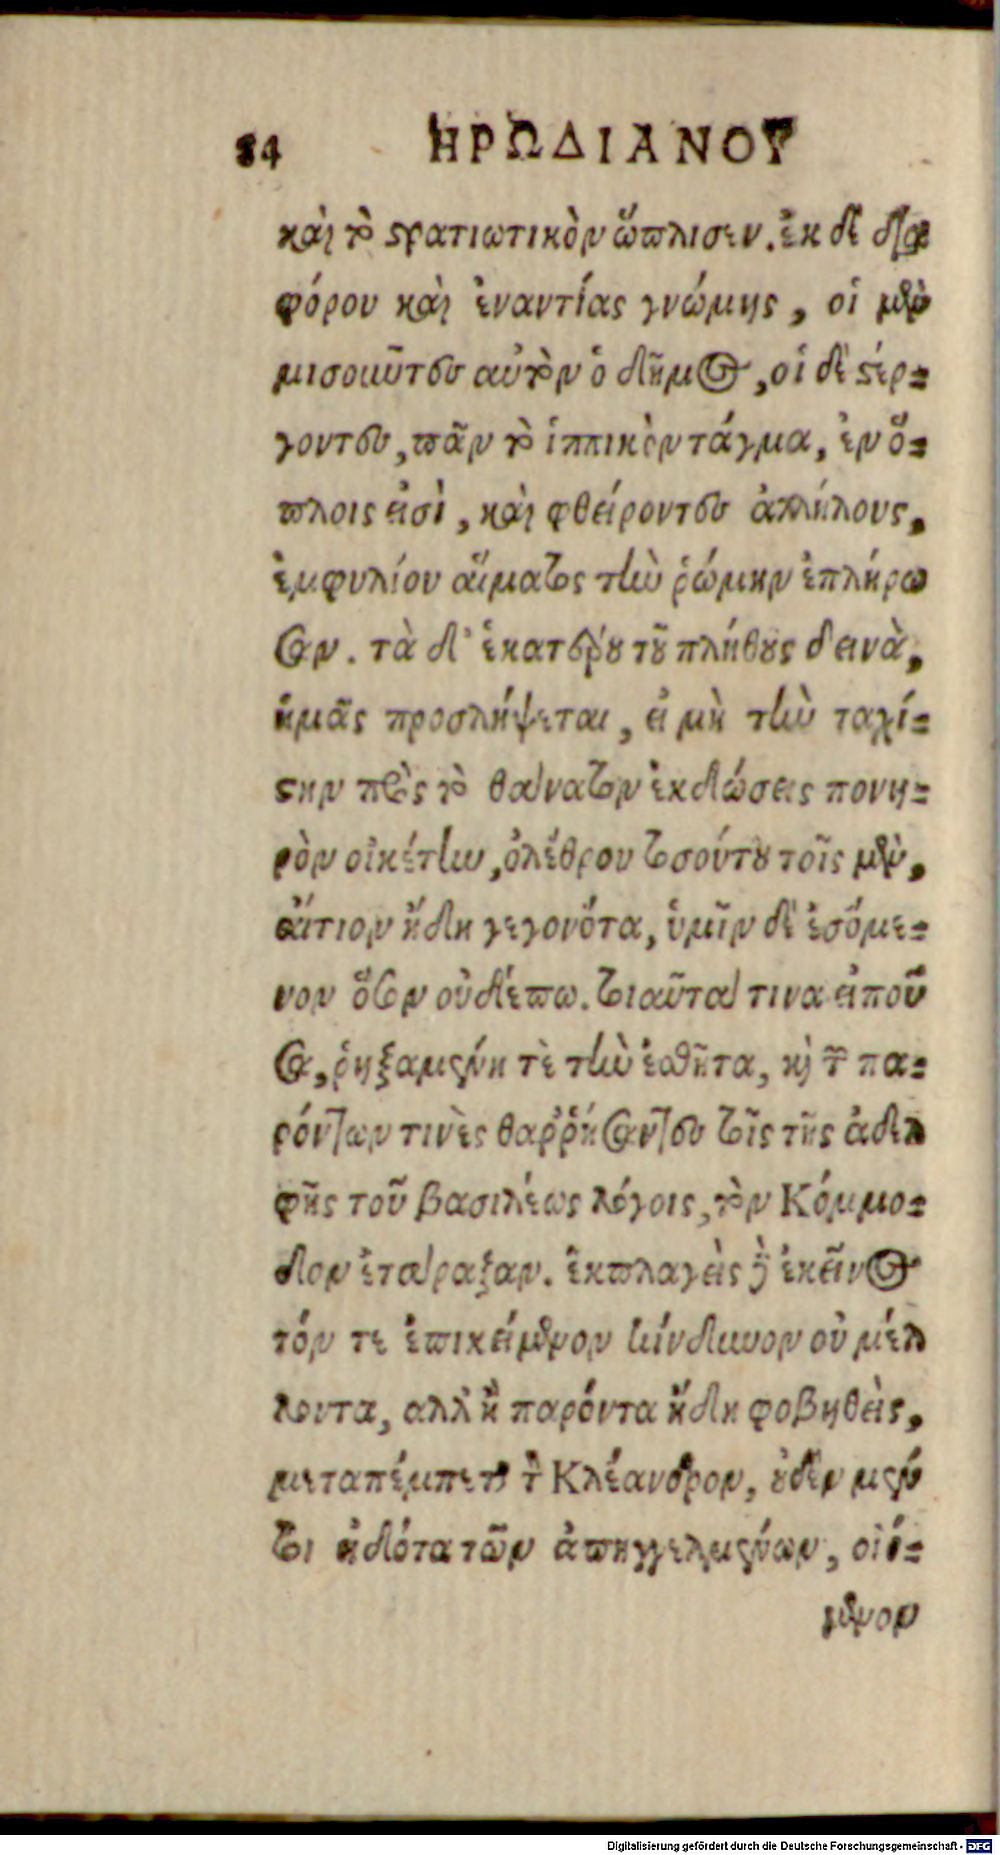 84 ΗΡΩΔΙΑΝΟΥ
καὶ τὸ στρατιωτικὸν ὥπλισεν. ἐκ δὲ δια
φόρου καὶ ἐναντίας γνώμης, οἱ μὲν
μισοῦντες αὐτὸν ὁ δῆμος, οἱ δὲ στέρ-
γοντες, πᾶν τὸ ἱππικὸν τάγμα, ἐν ὅ-
πλοις εἰσὶ, καὶ φθείροντες ἀλλήλους,
ἐμφυλίου αἵματος τὴν ῥώμην ἐπλήρω
σαν. τὰ δ' ἑκατέρου τοῦ πλήθους δεινὰ,
ἡμᾶς προσλήψεται, εἰ μὴ τὴν ταχί-
στην πρὸς τὸ θάνατον ἐκδώσεις πονη-
ρὸν οἰκέτην, ὀλέθρου τοσούτου τοῖς μὲν,
αἴτιον ἤδη γεγονότα, ὑμῖν δὲ ἐσόμε-
νον ὅσον οὐδέπω. τοιαῦτά τινα εἰποῦ
σα, ῥηξαμένη τὲ τὴν ἐσθῆτα, καὶ τῶν πα-
ρόντων τινὲς θαῤῥήσαντες τοῖς τῆς ἀδελ
φῆς τοῦ βασιλέως λόγοις, τὸν Κόμμο-
δον ἐτάραξαν. ἐκπλαγεὶς δὲ ἐκεῖνος
τόν τε ἐπικείμενον κίνδυνον οὐ μέλ
λοντα, αλλ' ἢ παρόντα ἤδη φοβηθεὶς,
μεταπέμπεται τὸν Κλέανδρον, οὐδὲν μέν
τοι εἰδότα τῶν ἀπηγγελμένων, οἰό-
μενον
Digitalisierung gefördert durch die Deutsche Forschungsgemeinschaft - DFG